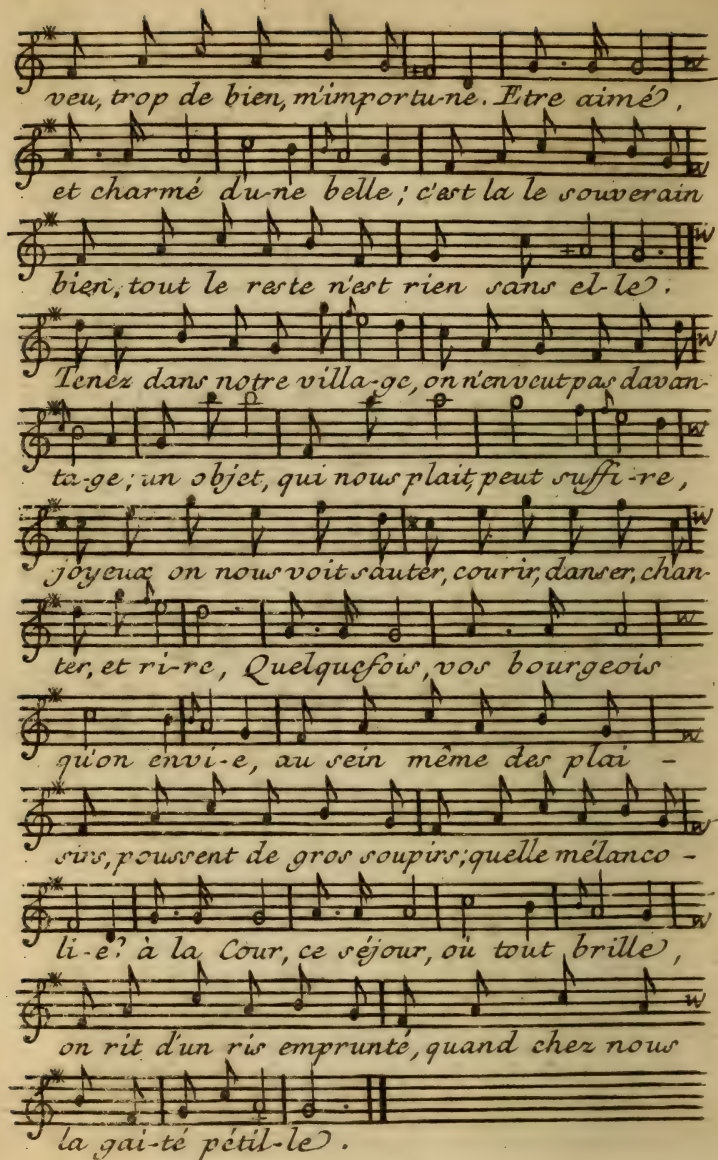 veu, trop de bien, m'importu-ne. Etre aimé,
et charmé du-ne belle; c'est la le souverain
bien, tout le reste n'est rien sans el-le.
Tenez dans notre villa-ge, on n'en veut pas davan-
ta-ge; un objet, qui nous plait, peut suffi-re,
joyeux on nous voit sauter, courir, danser, chan-
ter, et ri-re, Quelquefois, vos bourgeois
qu'on envi-e, au sein même des plai-
sirs, poussent de gros soupirs; quelle mélanco-
li-e? à la Cour, ce séjour, où tout brille,
on rit d'un ris emprunté, quand chez nous
la gai-té pétil-le.